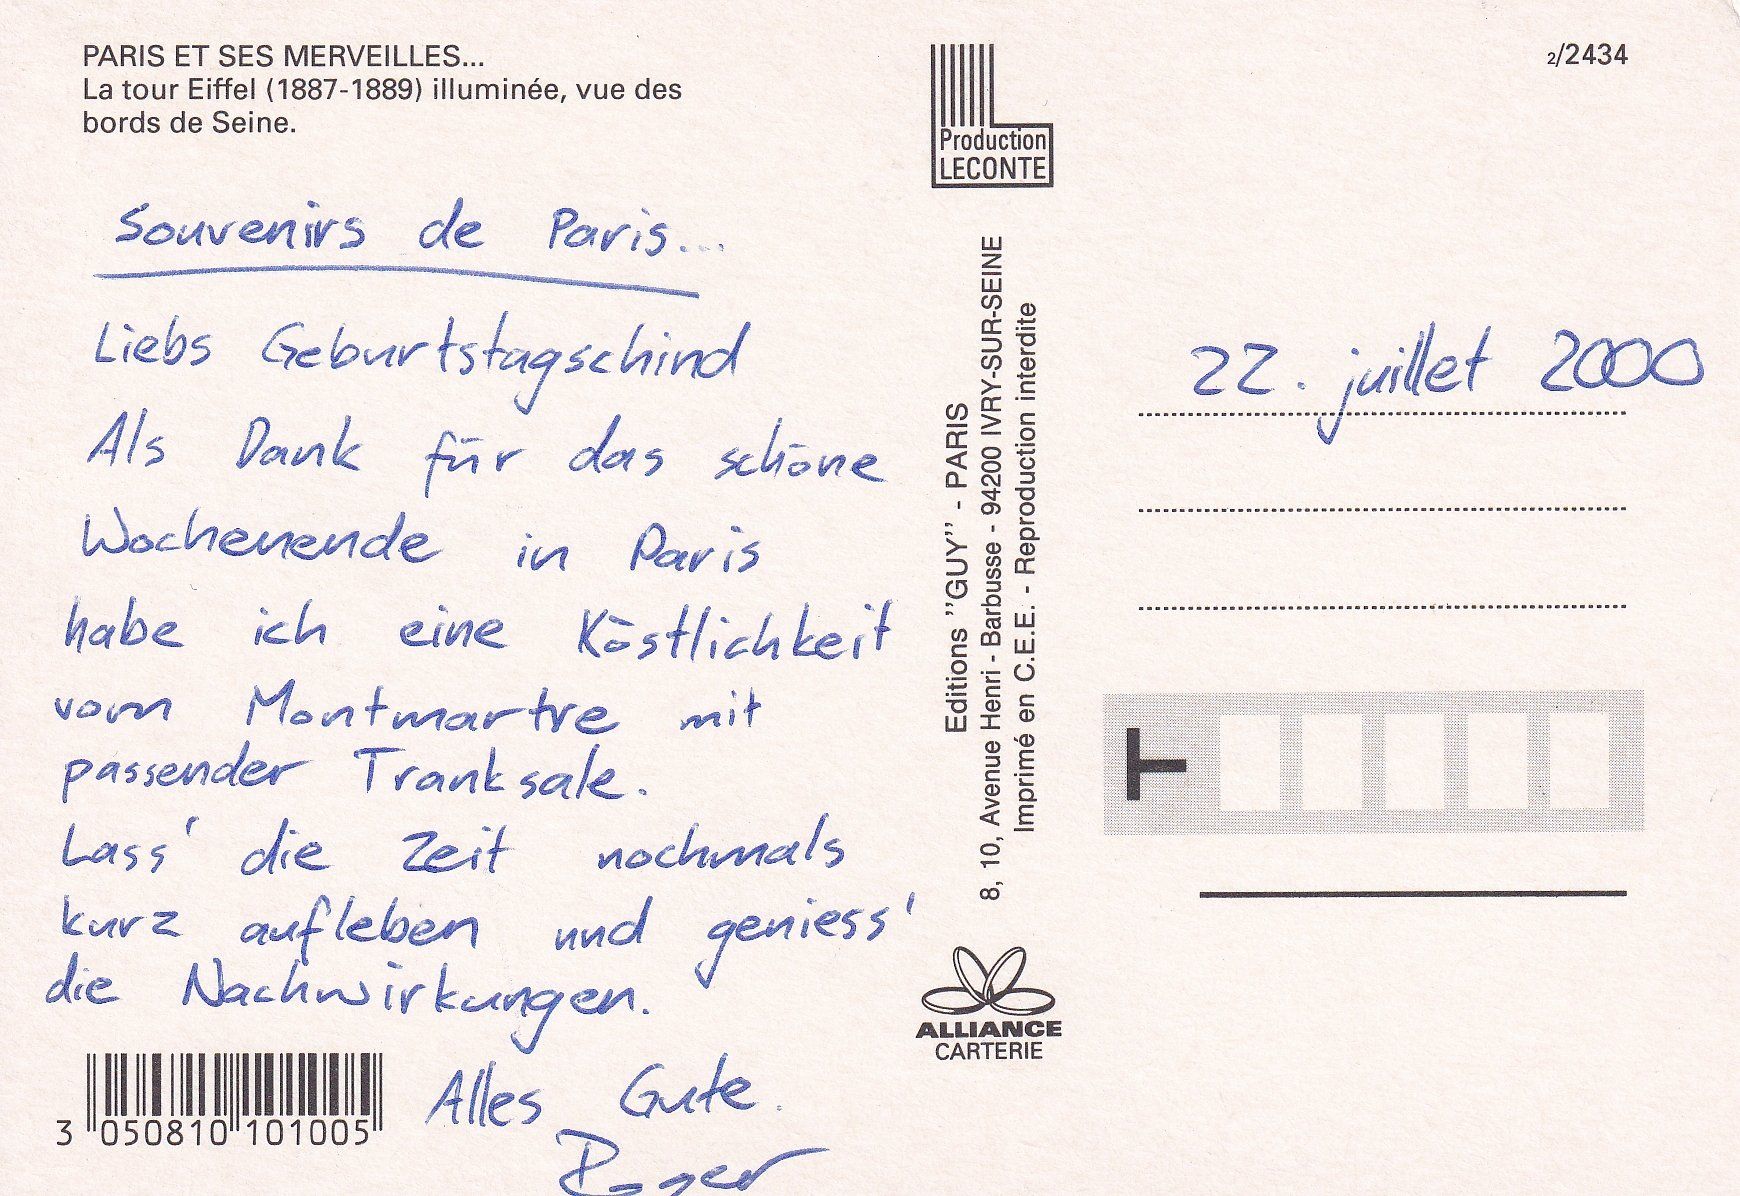 PARIS ET SES MERVEILLES...
La tour Eiffel (1887-1889) illuminée, vue des
bords de Seine.
Souvenirs de Paris...
Liebs Geburtstagschind
Als Dank für das schöne
Wochenende in Paris
habe ich eine Köstlichkeit
vom Montmartre mit
passender Tranksale.
Lass' die Zeit nochmals
kurz aufleben und geniess'
die Nachwirkungen.
Alles Gute.
Roger
3 050810 101005
Production
LECONTE
Editions "GUY" - PARIS
8, 10, Avenue Henri - Barbusse - 94200 IVRY-SUR-SEINE
Imprimé en C.E.E. - Reproduction interdite
ALLIANCE
CARTERIE
2/2434
22. juillet 2000
T